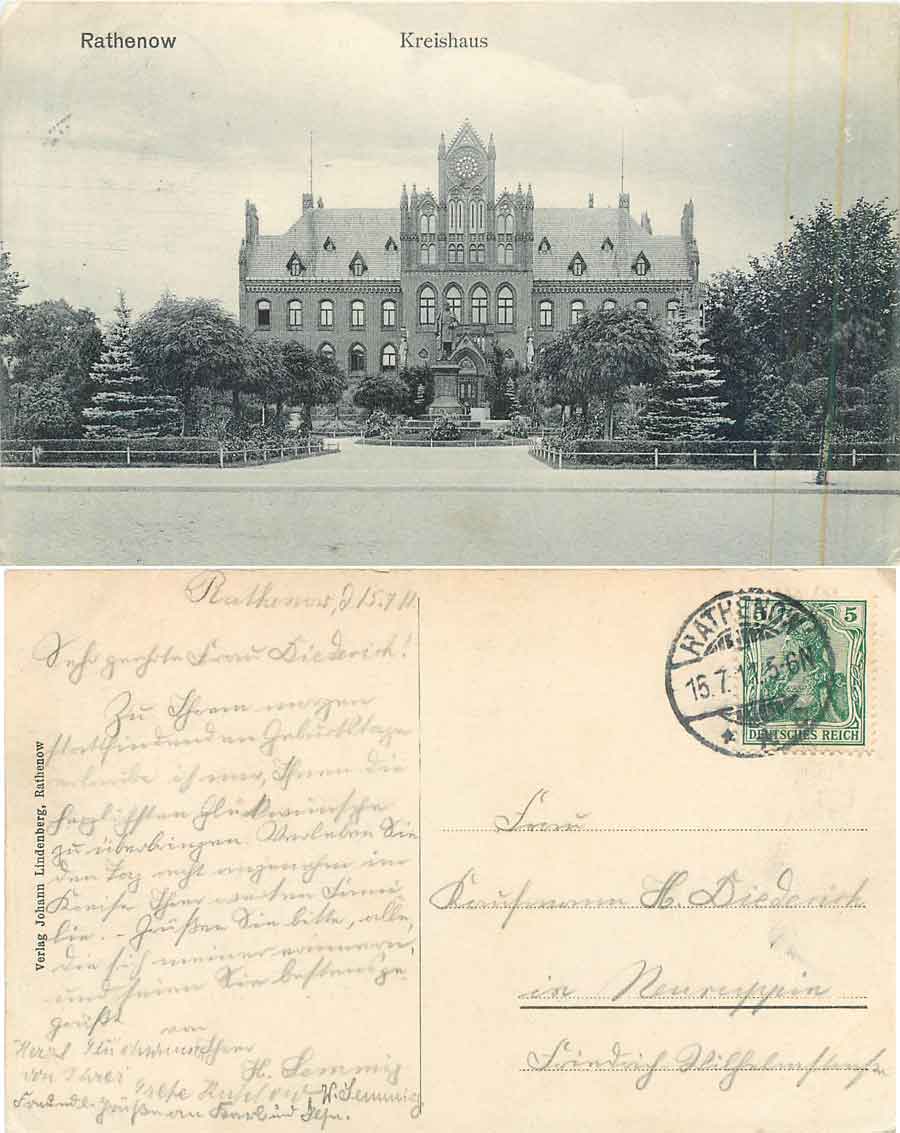 Rathenow
Kreishaus
Rathenow, d 15.7.11
Sehr geehrte Frau Diederich!
Zu Ihrem morgen
stattfindenden Geburtstage
erlaube ich mir, Ihnen die
herzlichsten Glückwünsche
zu überbringen. Verleben Sie
den Tag recht angenehm im
Kreise Ihrer werten Fami
lie. – Grüßen Sie bitte, alle,
die sich meiner erinnern,
und seien Sie bestens ge
grüßt
von
Ihrer
H. Lemmig
Herzl Glückwunsch
von Ihrer
Grete
W. Lemmig
Freundl. Grüße an Karl und
Verlag Johann Lindenberg, Rathenow
RATHENOW
15.7.11.5-6N
5 5
DEUTSCHES REICH
Frau
Kaufmann H. Diederich
in Neuruppin
Friedrich-Wilhelmstraße